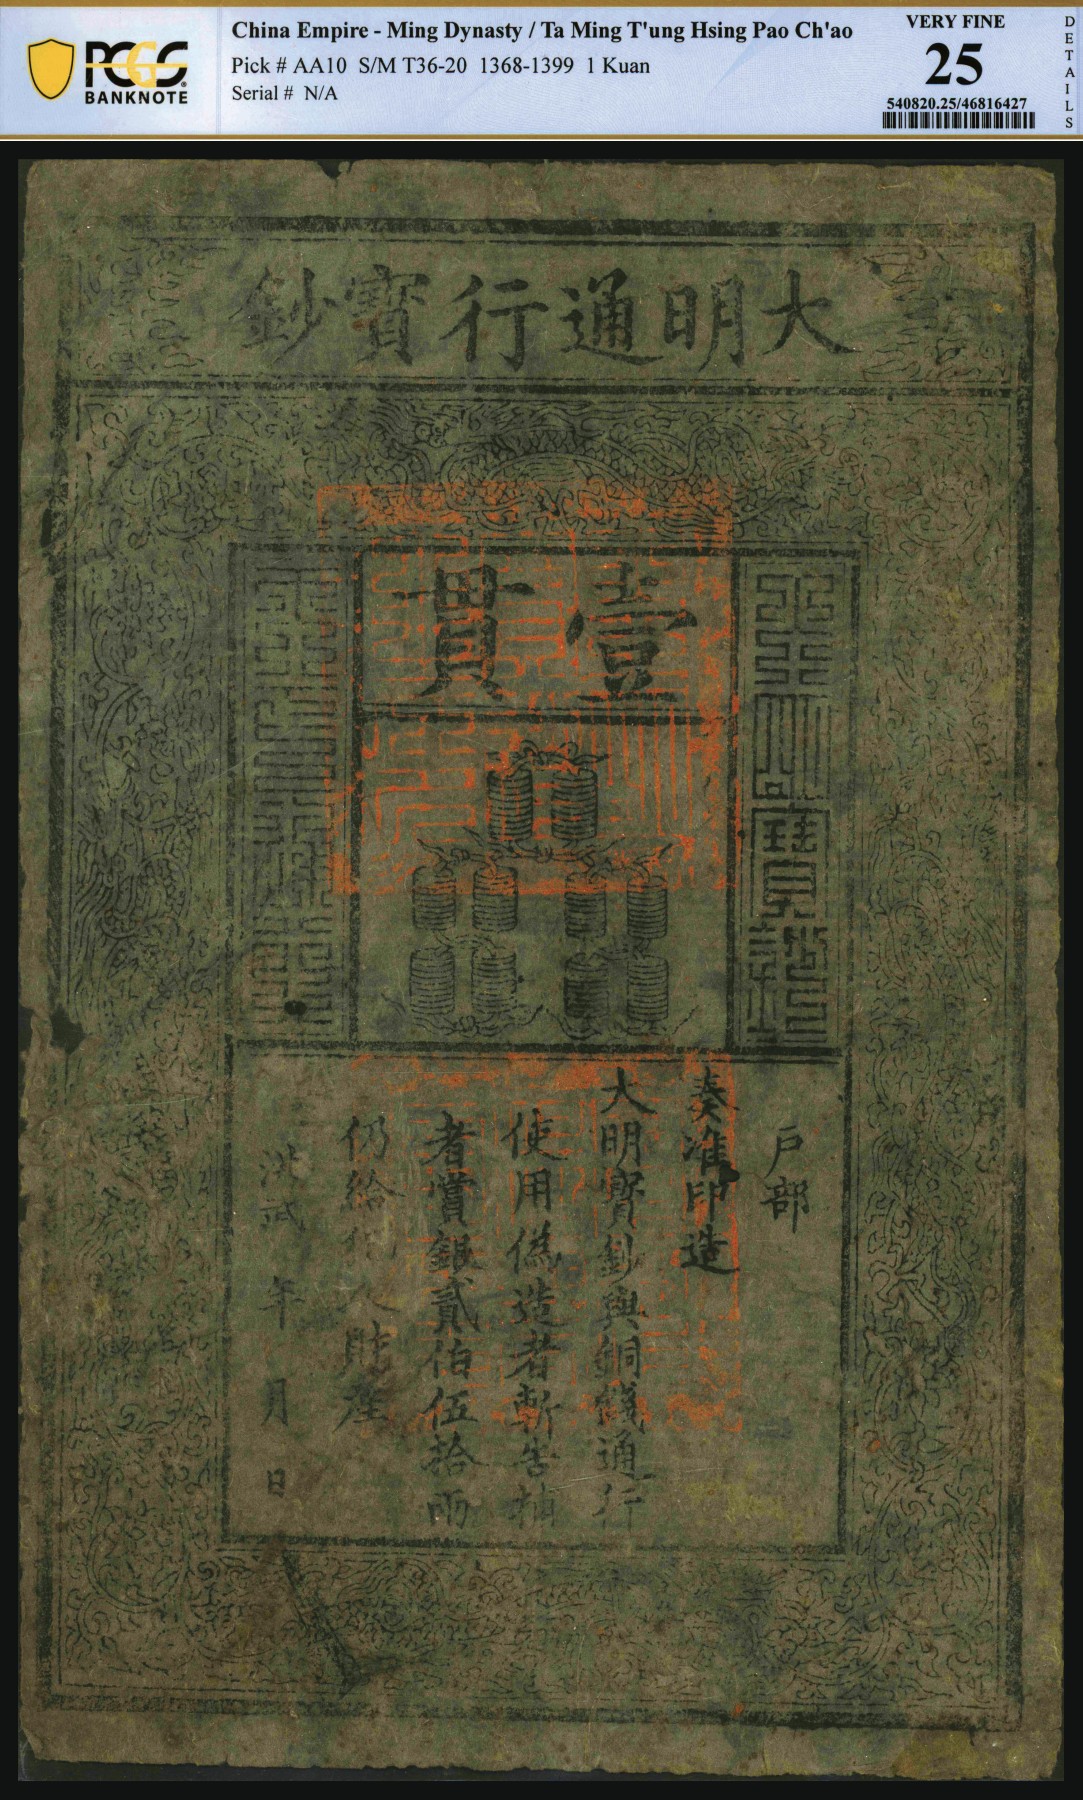 PCGS
BANKNOTE
China Empire - Ming Dynasty / Ta Ming T'ung Hsing Pao Ch'ao
Pick # AA10 S/M T36-20 1368-1399 1 Kuan
Serial # N/A
VERY FINE
25
540820.25/46816427
DETAILS
大明通行寳鈔
壹貫
戶部
奏准印造
大明寳鈔與銅錢通行
使用偽造者斬告捕
者賞銀貳伯伍拾兩
仍給犯人財産
洪武 年 月 日